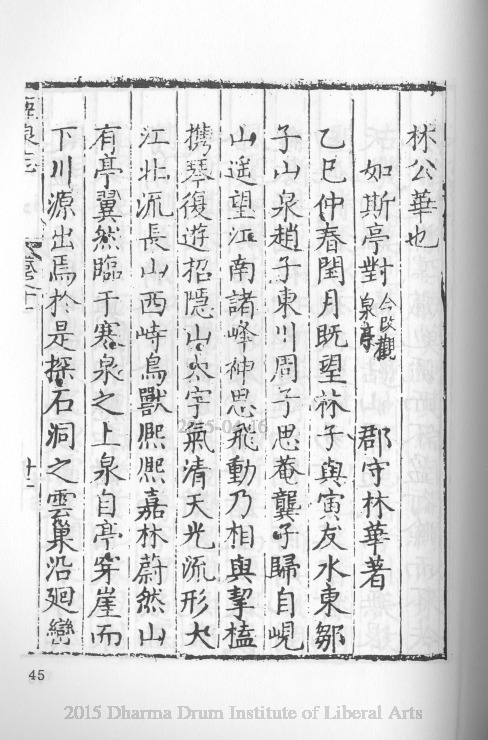 林公華也
如斯亭對今改觀泉亭 郡守林華著
乙巳仲春閏月既望林子與寅友水東鄒
子山泉趙子東川周子思菴龔子歸自峴
山遥望江南諸峰神思飛動乃相與挈榼
携琴復遊招隱山大宇氣清天光流形大
江北流長山西峙鳥獸熙熙嘉林蔚然山
有亭翼然臨于寒泉之上泉自亭穿崖而
下川源出焉於是探石洞之雲巢沿廻巒
卷之十
十一
45
2015-04-16
2015 Dharma Drum Institute of Liberal Arts